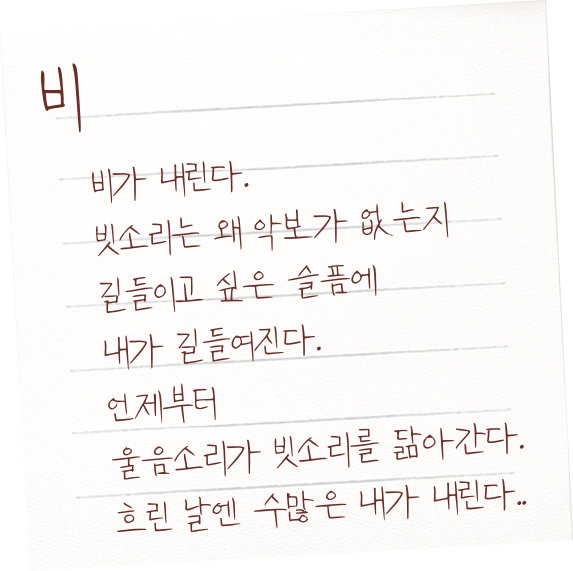 비
비가 내린다.
빗소리는 왜 악보가 없는지
길들이고 싶은 슬픔에
내가 길들여진다.
언제부터
울음소리가 빗소리를 닮아간다.
흐린 날엔 수많은 내가 내린다..